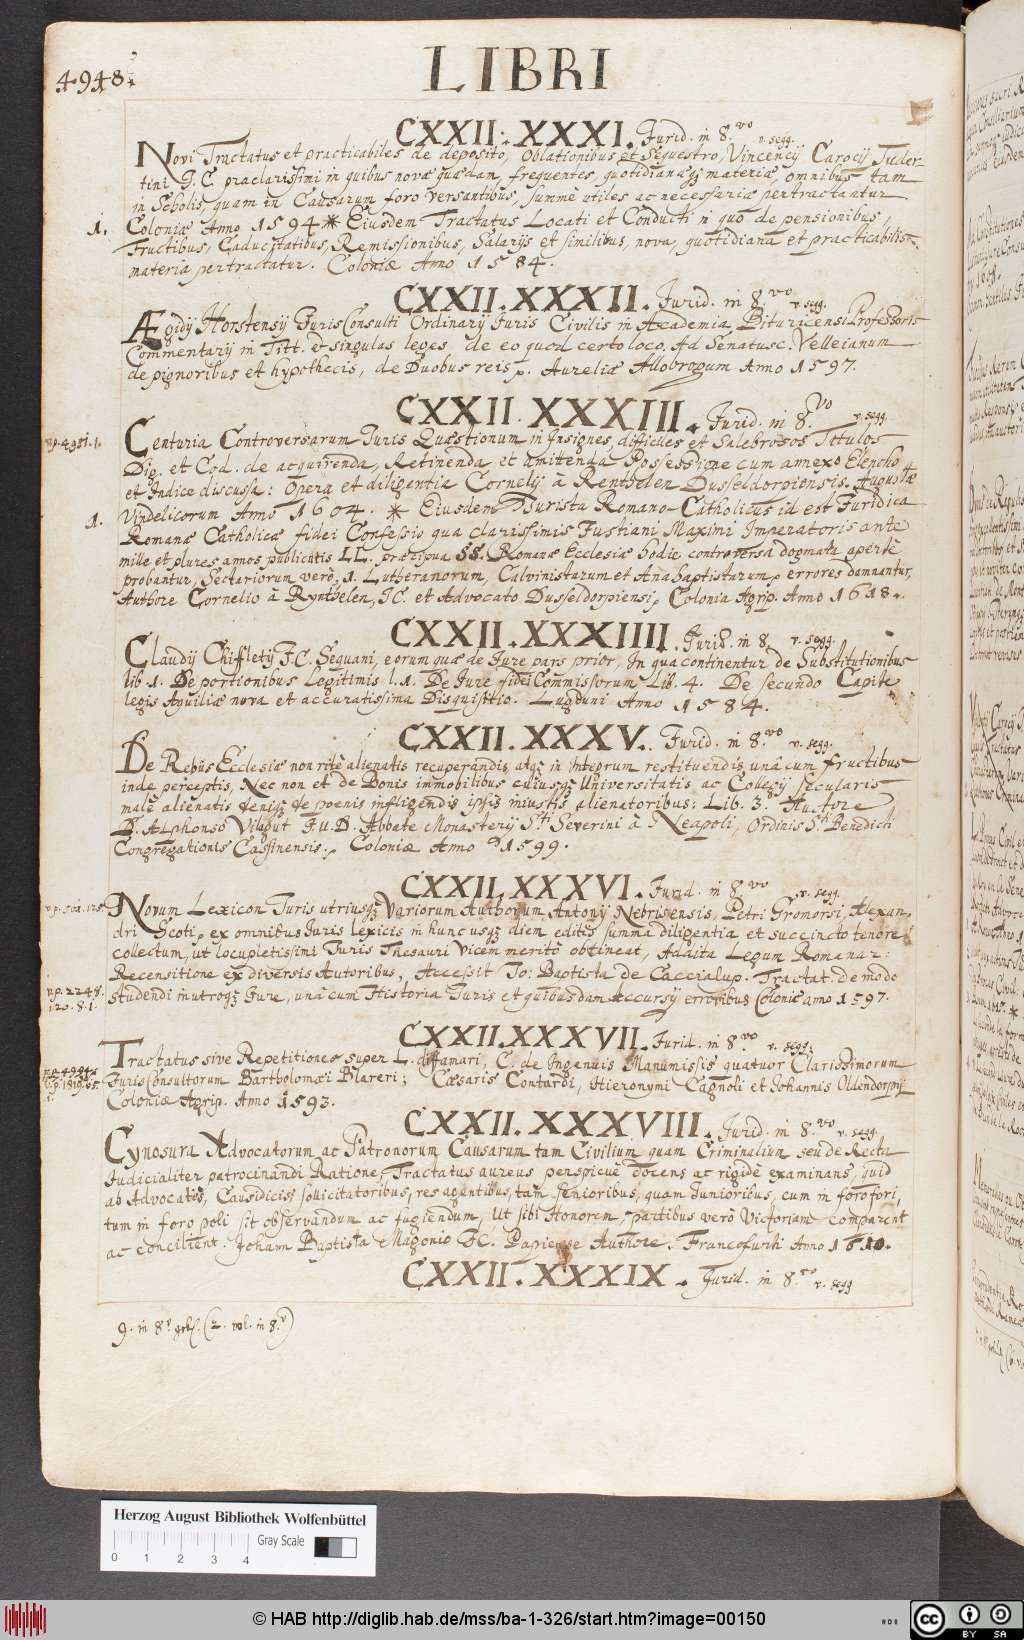 4948.
LIBRI
CXXII. XXXI. Jurid. in 8.vo v. segg.
Novi Tractatus et practicabiles de deposito, Oblationibus et Sequestro, Vincencij Carocij Tuder-
tini J. C. praeclarissimi in quibus novae quaedam, frequentes, quotidianaeq; materiae, omnibus tam
in Scholis, quam in Causarum foro versantibus, summè utiles ac necessariae pertractantur
1. Coloniae Anno 1594 * Eiusdem Tractatus Locati et Conducti in quo de pensionibus,
Fructibus, Caducitatibus, Remissionibus, Salarijs et similibus, nova, quotidiana et practicabilis
materia pertractatur. Coloniae Anno 1584.
CXXII. XXXII. Jurid. in 8.vo v. segg.
Ægidij Hortensij JurisConsulti Ordinarij Juris Civilis in Academia Bituricensi Professoris
Commentarij in Titt. et singulas leges de eo quod certo loco. Ad Senatusc. Velleianum
de pignoribus et hypothecis, de Duobus reis p. Aureliae Allobrogum Anno 1597.
CXXII. XXXIII. Jurid. in 8.vo v. segg.
v.p. 4951.1. Centuria Controversarum Juris Quaestionum in Insignes, difficiles et Salebrosos Titulos
Dig. et Cod. de acquirenda, Retinenda et amittenda Possessione cum annexo Elencho
et Indice discussa: Opera et diligentia Cornelij à Renthelen Dusseldorpiensis. Augustae
1. Vindelicorum Anno 1604. * Eiusdem Jurista Romano-Catholicus id est Juridica
Romanae Catholicae fidei Confessio qua clarissimis Justiani Maximi Imperatoris ante
mille et plures annos publicatis LL. praecipua SS. Romanae Ecclesiae hodie controversa dogmata apertè
probantur, Sectariorum verò, 1. Lutheranorum, Calvinistarum et Anabaptistarum, errores damnantur,
Authore Cornelio à Rynthelen, JC. et Advocato Dusseldorpiensi, Colonia Agrip. Anno 1618.
CXXII. XXXIIII. Jurid. in 8. v. segg.
Claudij Chiffletij J.C. Sequani, eorum quae de Jure pars prior, In qua continentur de Substitutionibus
lib. 1. De portionibus Legitimis l. 1. De Jure fidei Commissorum Lib. 4. De secundo Capite
legis Aquiliae nova et accuratissima Disquisitio. Lugduni Anno 1584.
CXXII. XXXV. Jurid. in 8.vo v. segg.
De Rebus Ecclesiae non ritè alienatis recuperandis atq; in Integrum restituendis unà cum fructibus
inde perceptis, Nec non et de Bonis immobilibus cuiusq; Universitatis ac Collegij secularis
malè alienatis deniq; de poenis infligendis ipsis iniustis alienatoribus: Lib. 3. Auctore
D. Alphonso Vilagut J.U.D. Abbate Monasterij S.ti Severini à Neapoli, Ordinis S.ti Benedicti
Congregationis Cassinensis. Coloniae Anno 1599.
CXXII. XXXVI. Jurid. in 8.vo v. segg.
Novum Lexicon Juris utriusq; Variorum Authorum Antonij Nebrisensis, Petri Gromorsi, Alexan-
dri Scoti, ex omnibus Juris lexicis in hunc usq; diem editis summa diligentia et succincto tenore
collectum, ut locupletissimi Juris Thesauri Vicem meritò obtineat, Addita Legum Romanar:
Recensitione ex diversis Autoribus, Accessit Jo: Baptista de Caccialup. Tractat. de modo
v.p. 2248. Studendi in utroq; Jure, unà cum Historia Juris et quibusdam Accursij erroribus Coloniae anno 1597.
CXXII. XXXVII. Jurid. in 8.vo v. segg.
Tractatus sive Repetitiones super L. diffamari, C. de Ingenuis Manumissis quatuor Clarissimorum
JurisConsultorum Bartholomaei Blareri; Caesaris Contardi, Hieronymi Cagnoli et Johannis Ollendorpij
Coloniae Agrip. Anno 1593.
CXXII. XXXVIII. Jurid. in 8.vo v. segg.
Cynosura Advocatorum ac Patronorum Causarum tam Civilium quam Criminalium seu de Recta
Judicialiter patrocinandi Ratione, Tractatus aureus perspicuè docens ac rigidè examinans, quid
ab Advocatis, Causidicis, sollicitatoribus, res agentibus, tam senioribus, quam Junioribus, cum in foro fori,
tum in foro poli sit observandum ac fugiendum, Ut sibi Honorem, partibus verò Victoriam comparent
ac concilient. Johann Baptista Magonio JC. Papiense Authore. Francofurti Anno 1610.
CXXII. XXXIX. Jurid. in 8.vo v. segg
9. in 8.v (2. vol. in 8.v)
Herzog August Bibliothek Wolfenbüttel
Gray Scale
0 1 2 3 4
© HAB http://diglib.hab.de/mss/ba-1-326/start.htm?image=00150
cc BY SA